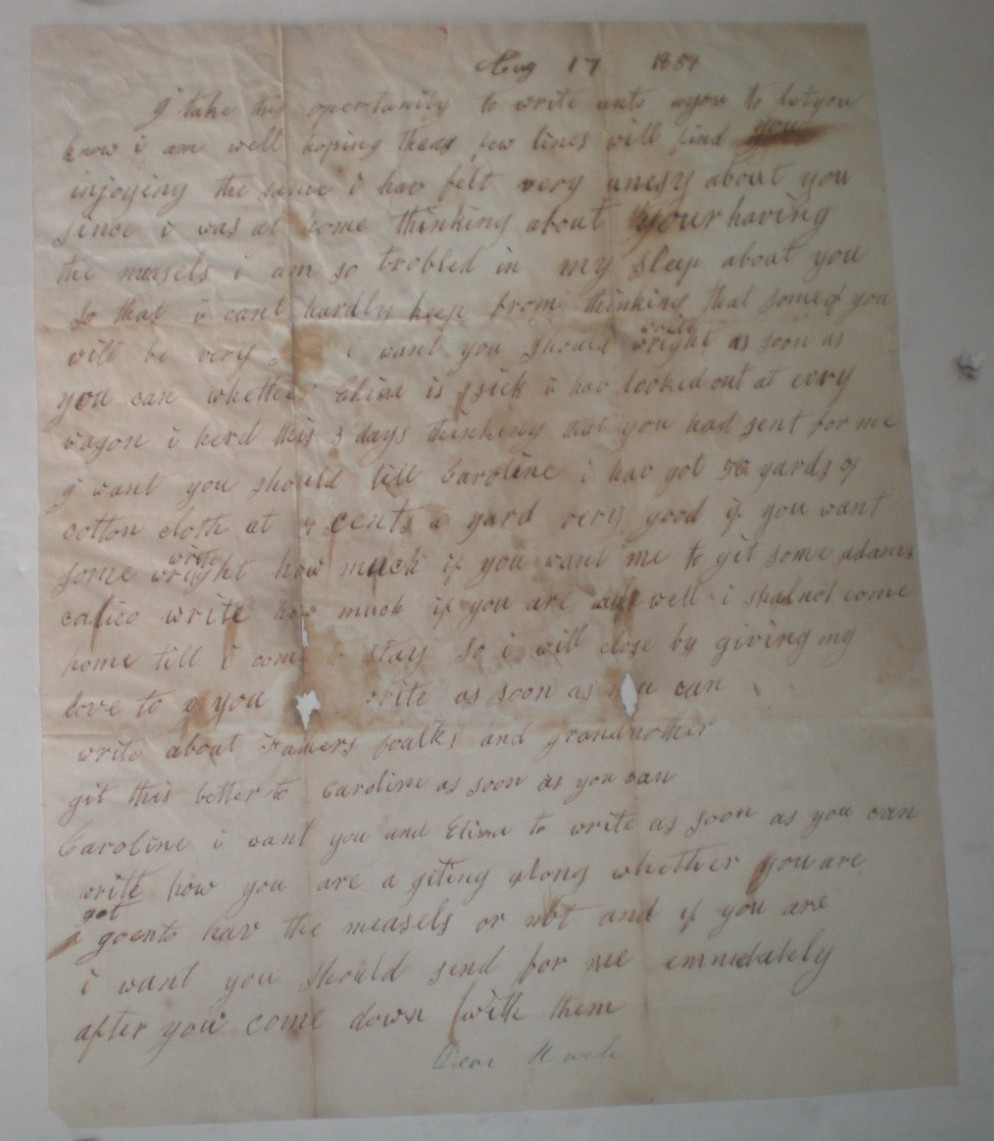 Aug 17 1854
I take this opertunity to write unto you to let you
know i am well hoping theas few lines will find you
injoying the same i hav felt very unesy about you
since i was at home thinking about your having
the mesels i am so trobled in my sleep about you
so that i cant hardly keep from thinking that some of you
will be very i want you should wright write as soon as
you can whether Elisa is sick i hav looked out at evry
wagon i herd this 3 days thinking that you had sent for me
I want you should till Caroline i hav got 50 yards of
cotton cloth at cents a yard very good if you want
some wright write how much if you want me to git some adams
calico write how much if you are all well i shal not come
home till i come to stay so i will close by giving my
love to you write as soon as you can
write about foalks and grandmother
git this letter to Caroline as soon as you can
Caroline i want you and Elisa to write as soon as you can
write how you are a giting along whether you are
got
a goento hav the measels or not and if you are
i want you should send for me immedately
after you come down with them
Dear